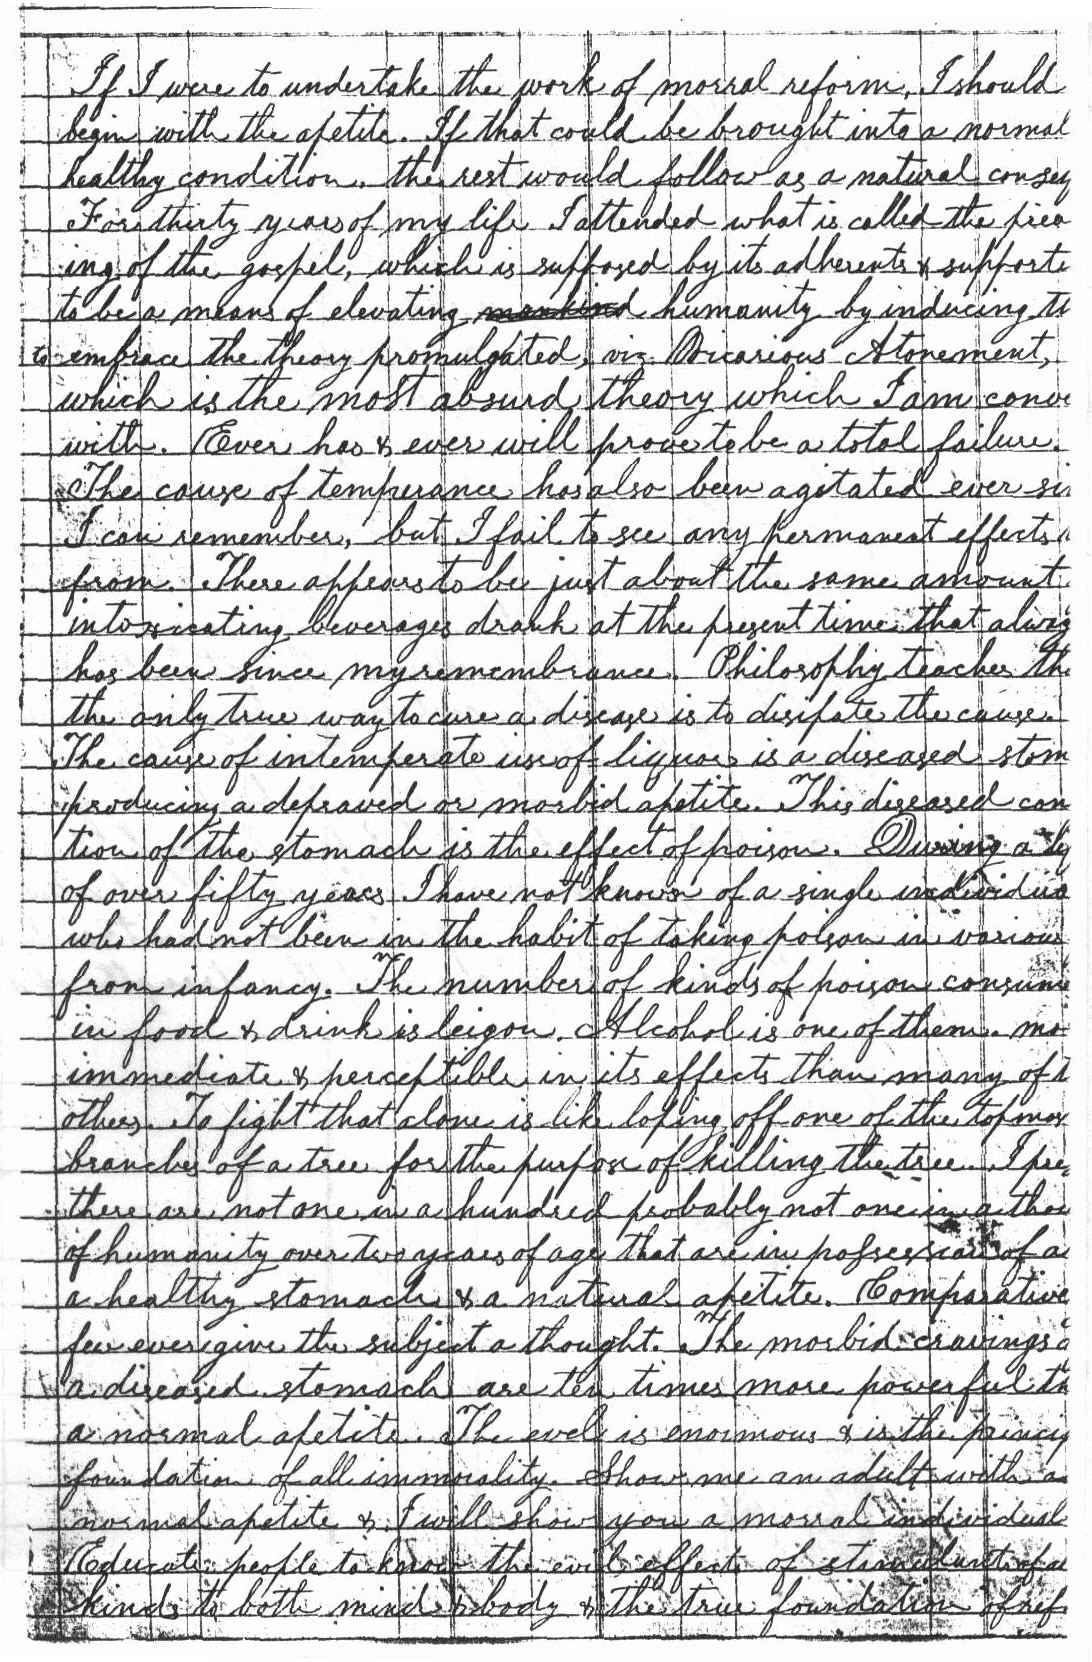 If I were to undertake the work of morral reform, I should
begin with the apetite. If that could be brought into a normal
healthy condition, the rest would follow as a natural conseq
For thirty years of my life I attended what is called the prea
ing of the gospel, which is supposed by its adherents & supporte
to be a means of elevating mankind humanity by inducing th
to embrace the theory promulgated, viz. Vicarious Atonement,
which is the most absurd theory which I am conve
with. Ever has & ever will prove to be a total failure.
The cause of temperance has also been agitated ever sin
I can remember, but I fail to see any permanent effects
from. There appears to be just about the same amount
intoxicating beverages drank at the present time that alway
has been since my remembrance. Philosophy teaches tha
the only true way to cure a disease is to disipate the cause.
The cause of intemperate use of liquors is a diseased stom
producing a depraved or morbid apetite. This diseased con
tion of the stomach is the effect of poison. During a
of over fifty years I have not known of a single individua
who had not been in the habit of taking poison in various
from infancy. The number of kinds of poison consume
in food & drink is leigon. Alcohol is one of them. mo
immediate & perceptible in its effects than many of t
others. To fight that alone is like loping off one of the topmos
branches of a tree for the purpose of killing the tree. I pre
there are not one in a hundred probably not one in a thou
of humanity over two years of age that are in possession of a
a healthy stomach & a natural apetite. Comparative
few ever give the subject a thought. The morbid cravings o
a diseased stomach are ten times more powerful th
a normal apetite. The evel is enormous & is the princip
foundation of all immorality. Show me an adult with a
normal apetite & I will show you a morral individual
Educate people to know the evil effects of stimulants of a
kinds to both mind & body & the true foundation of ref